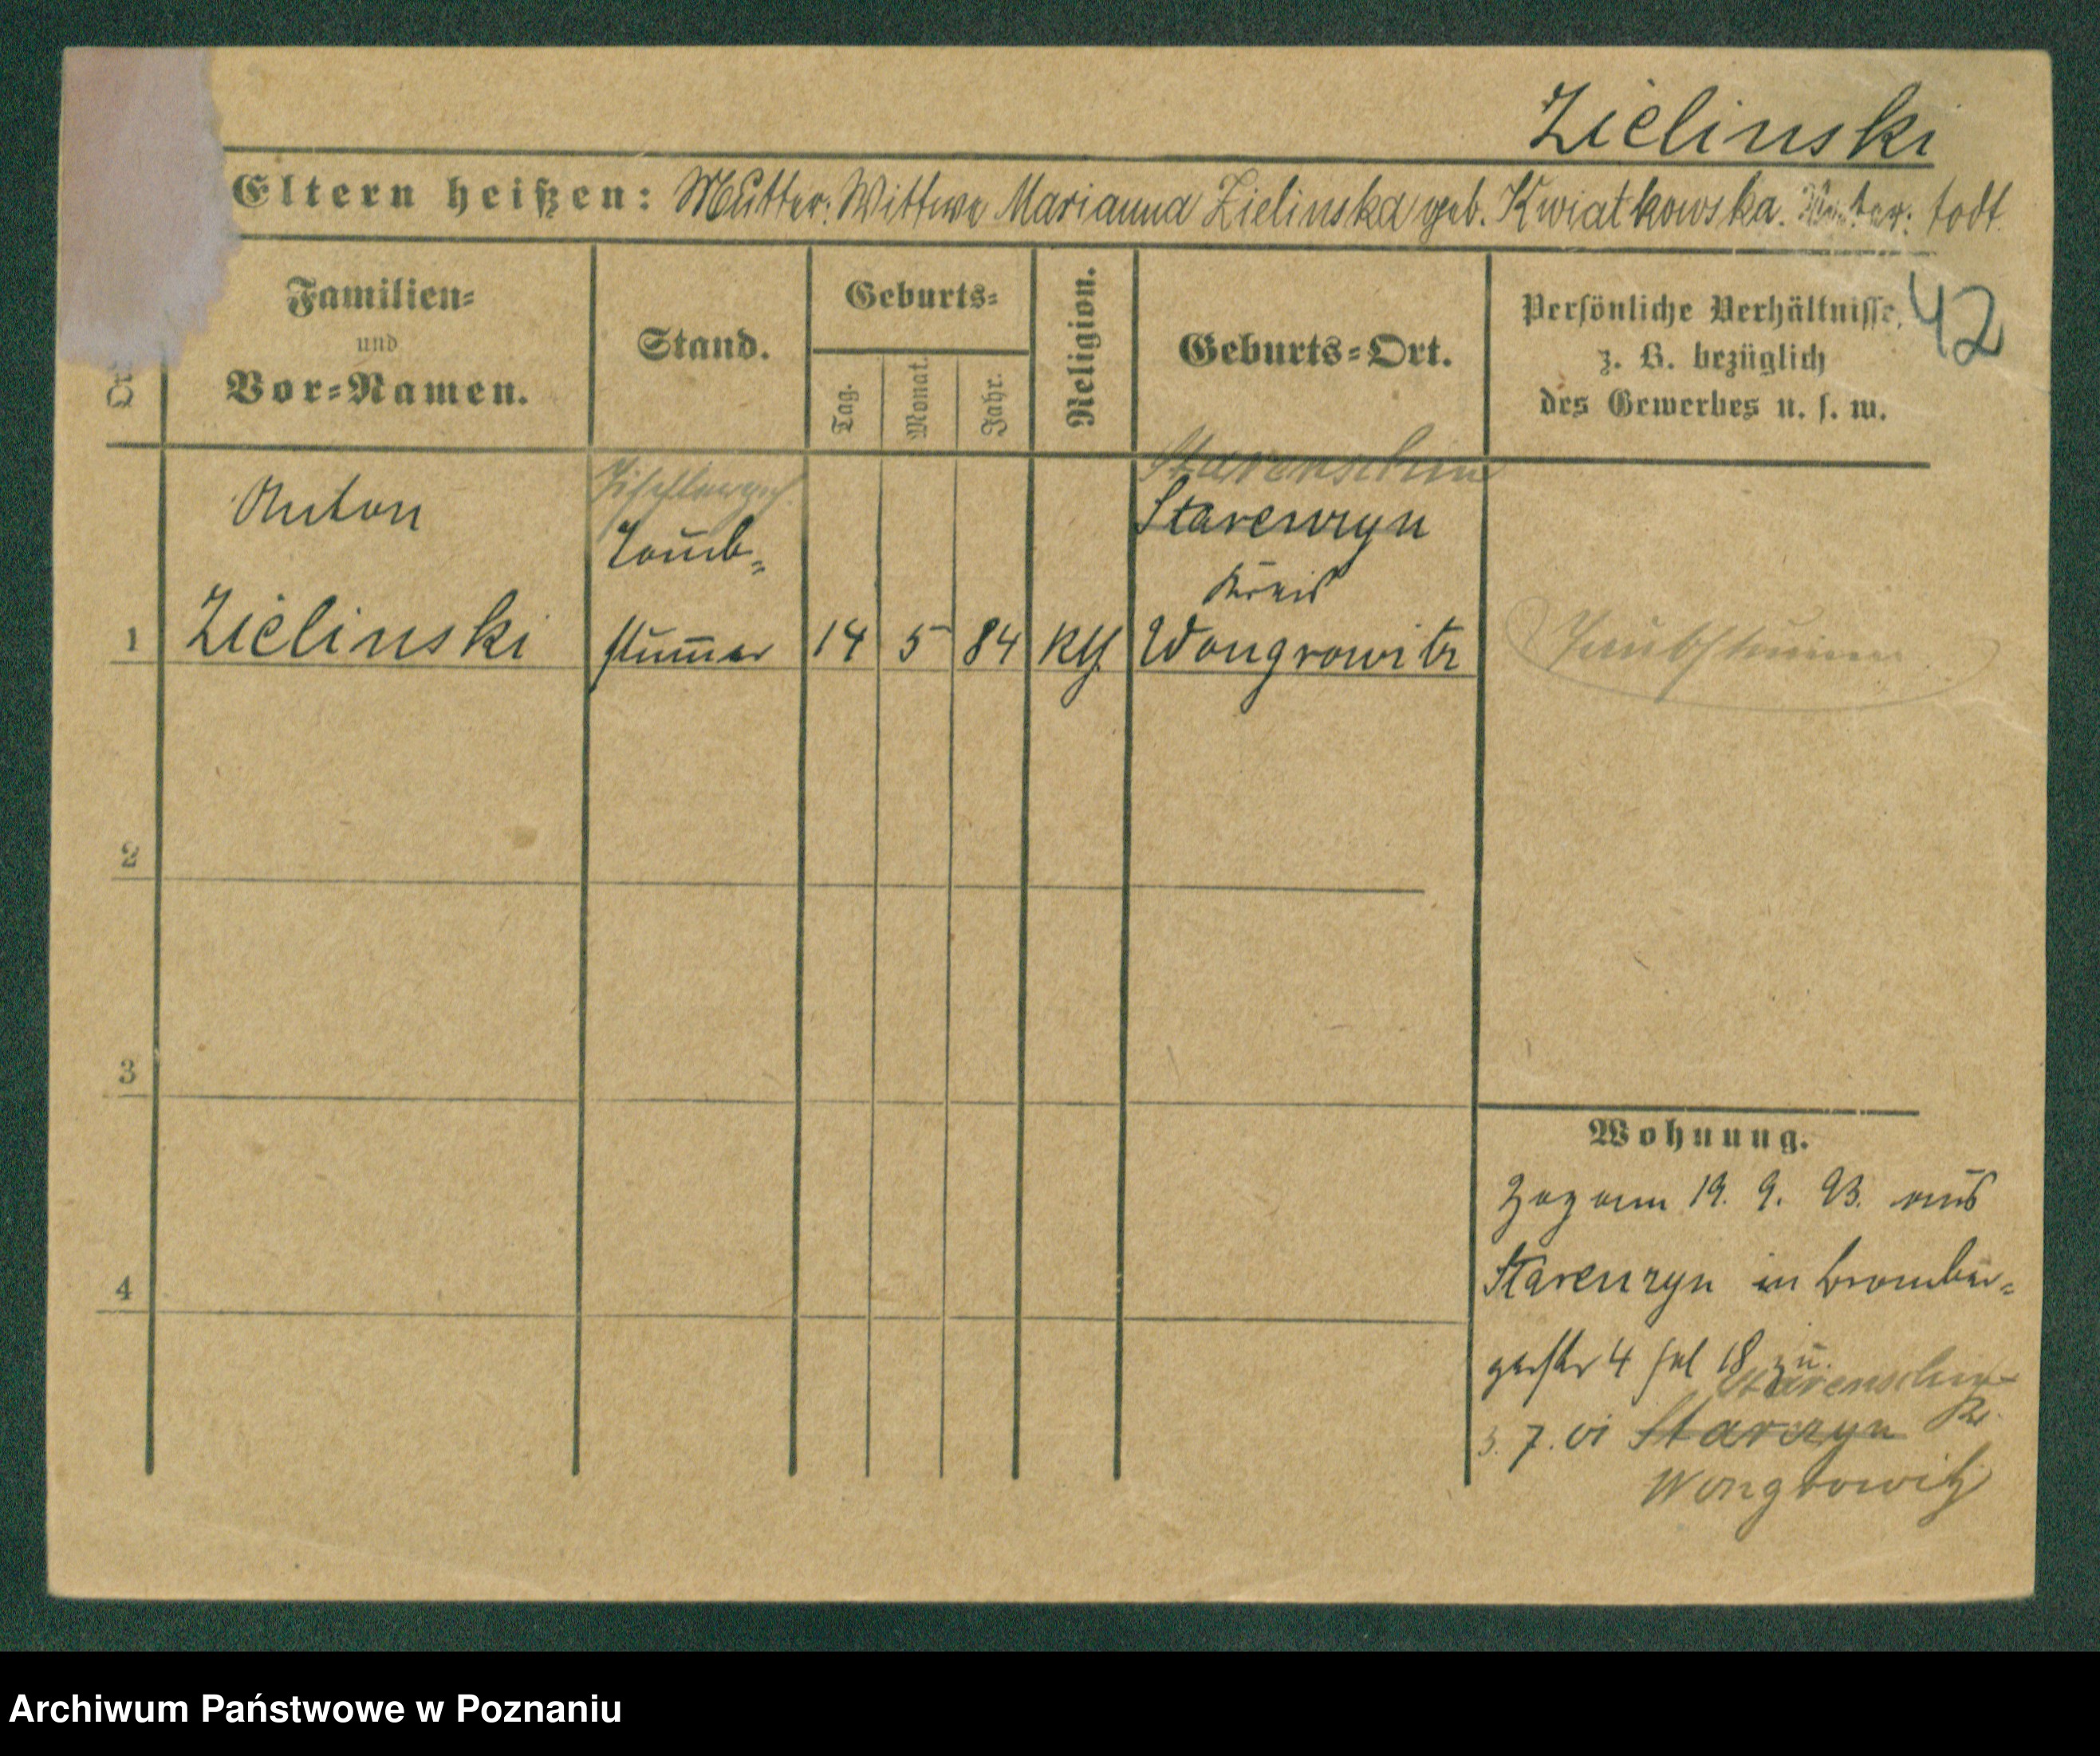 Zielinski
Eltern heißen: Mutter: Wittwe Marianna Zielinska geb. Kwiatkowska. Vater: todt.
42
Familien=
und
Vor=Namen.
Stand.
Geburts=
Tag.
Monat.
Jahr.
Religion.
Geburts=Ort.
Persönliche Verhältnisse,
z. B. bezüglich
des Gewerbes u. s. w.
Starenschin
Anton
Tischlergesch
Starenzyn
Taub=
Kreis
1 Zielinski stummer 14 5 84 kth Wongrowitz Taubstumm
2
3
4
Wohnung.
Zog am 19. 9. 93. aus
Starenzyn in Bromber=
gerstr 4 bei 18 zu.
Starenschin
3. 7. 01 Starczyn Kr.
Wongrowitz
Archiwum Państwowe w Poznaniu